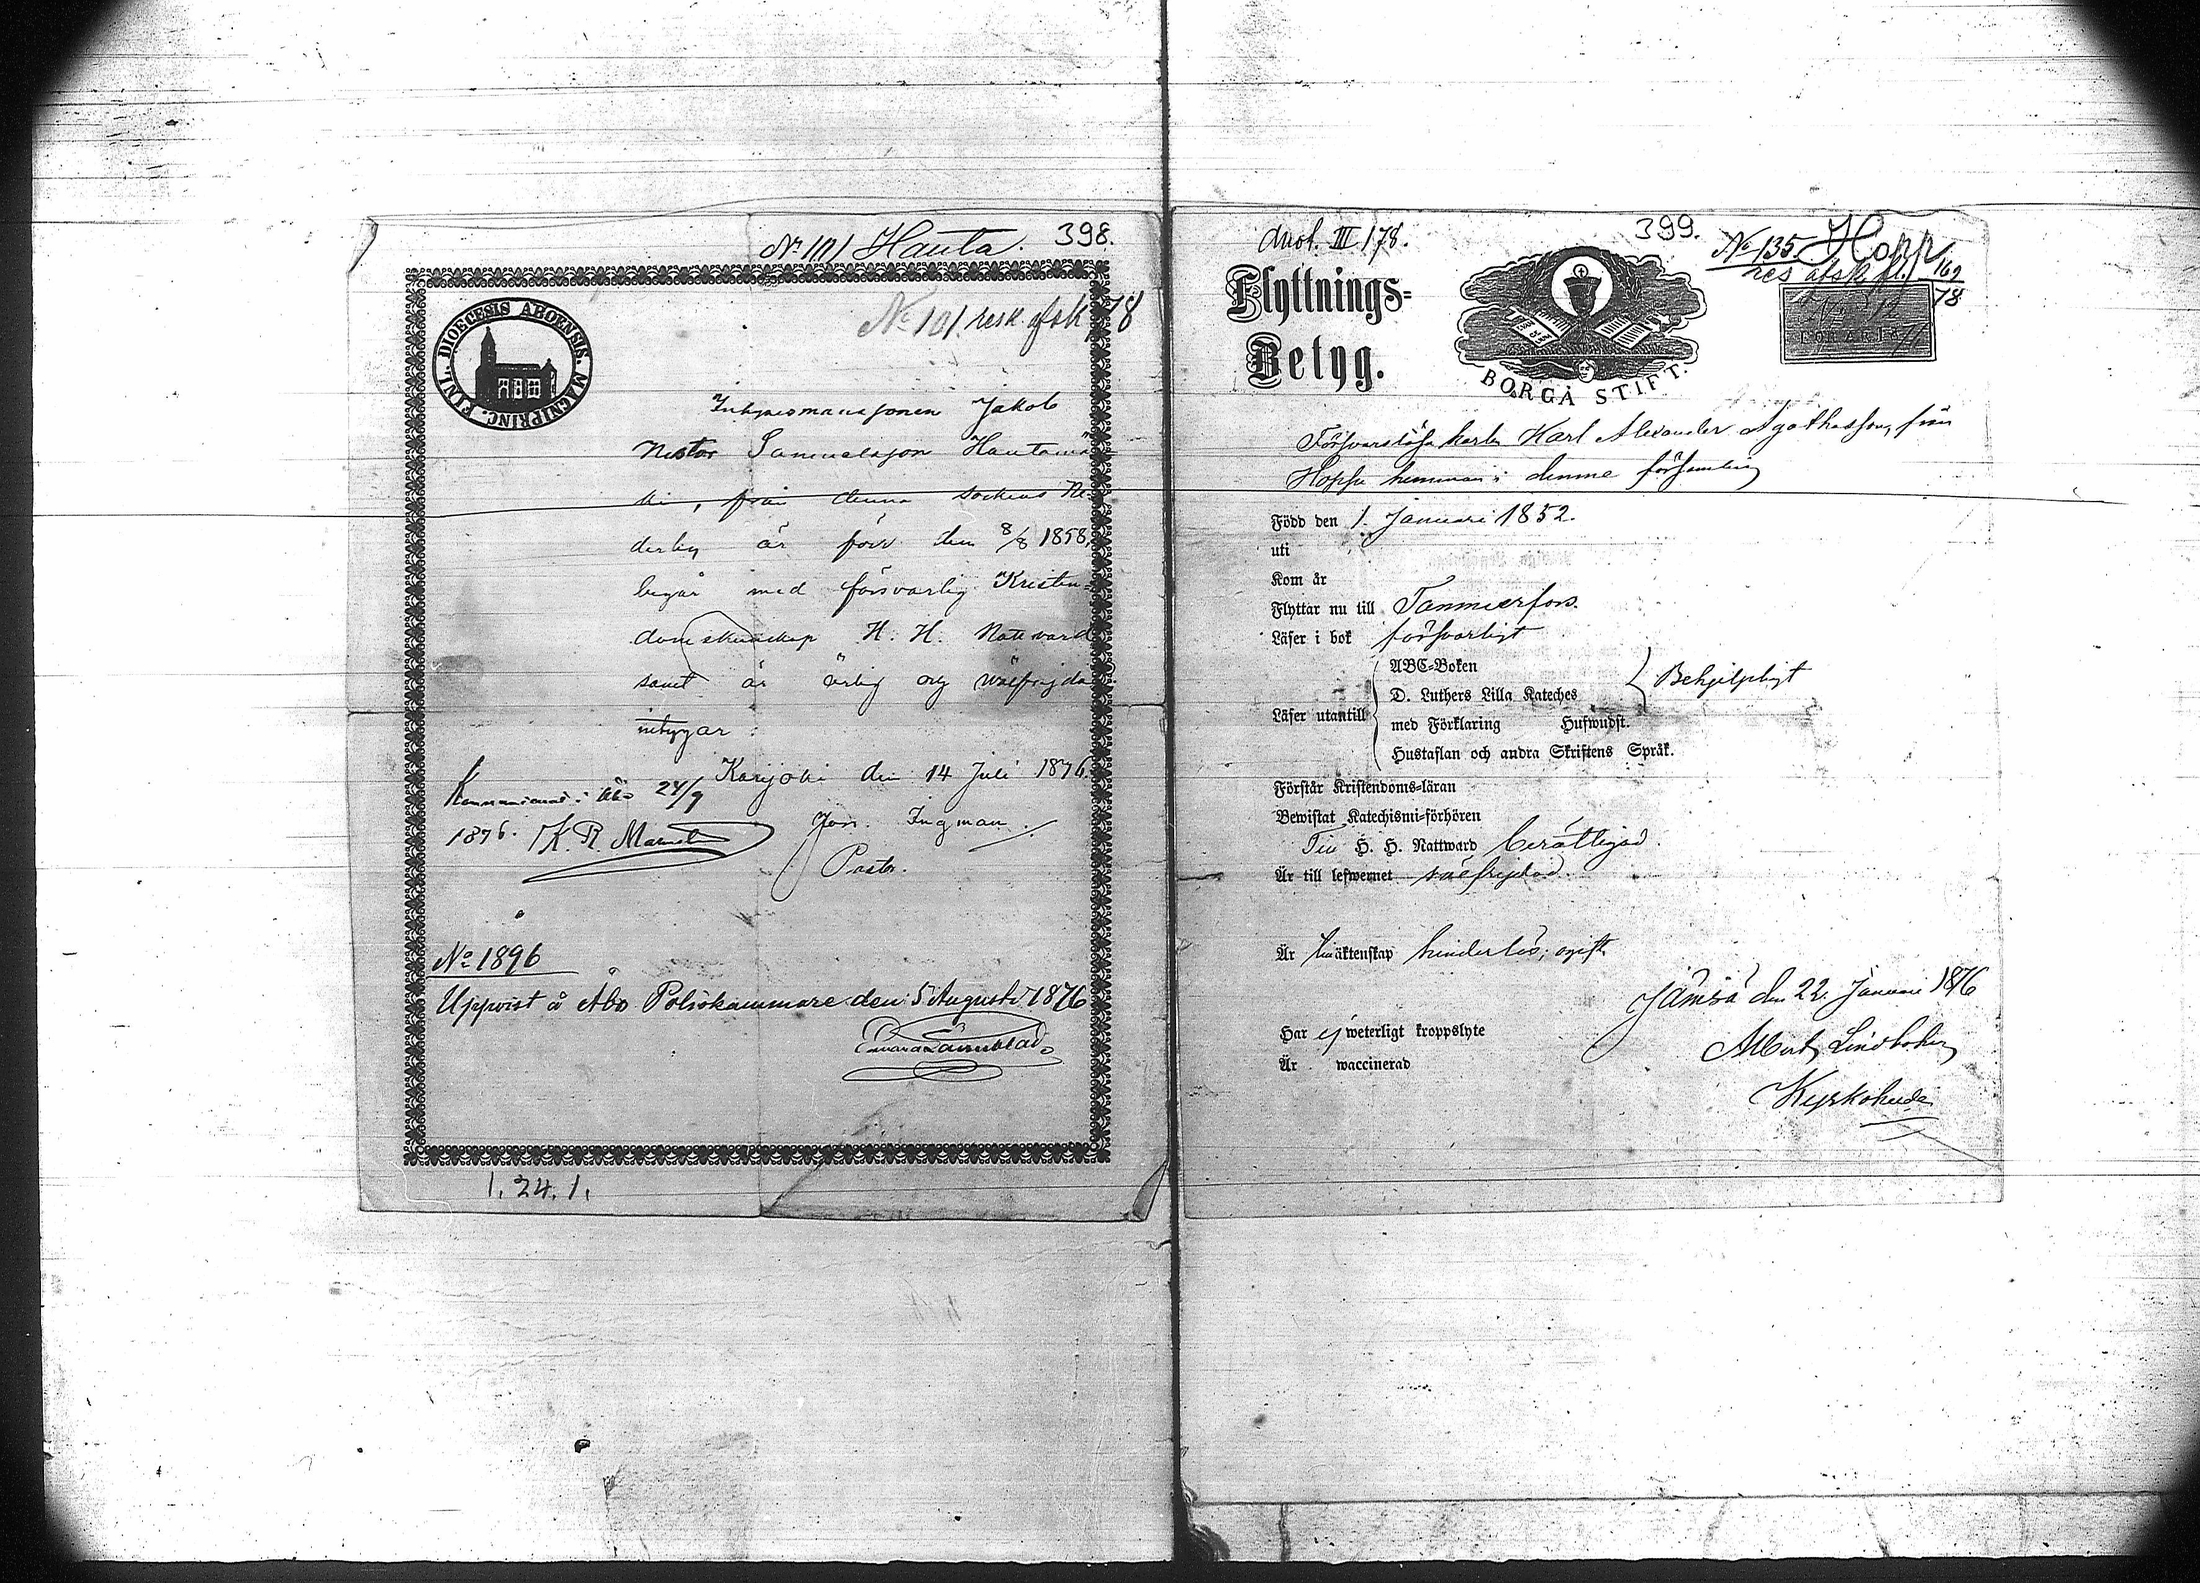 398.
No 101 Hauta.
No 101 resk afsk 78
FINL. DIOECESIS ABOENSIS. MAGNIPRINC.
Inhysesmanssonen Jakob
Nestor Samuelsson Hautamä
ki, från denna sockens Ne-
derby är född den 8/8 1858,
begår med försvarlig Kristen-
domskunskap H. H. Nattvard
samt är ärlig och wälfrejdad
intygar:
Karijoki den 14 Juli 1876.
Jos. Ingman.
Pastor.
Kommunicerat i Åbo 24/9
1876. K. R. Malmst
No 1896
Uppvist å Åbo Poliskammare den 5 Augusti 1876
1. 24. 1.
399.
No 135 Hopp
res afsk fl. 169
78
anot. III 178.
Flyttnings-
Betyg.
BORGÅ STIFT.
Försvarslöse karlen Karl Alexander Agathasson, från
Hoppu hemman i denna församling
Född den 1. Januari 1852.
uti
Kom år
Flyttar nu till Tammerfors.
Läser i bok försvarligt
Läser utantill
ABC-Boken
D. Luthers Lilla Kateches
med Förklaring Hufwudst.
Hustaflan och andra Skriftens Språk.
Behjelpligt
Förstår Kristendoms-läran
Bewistat Katechismi-förhören
Till H. H. Nattward berättigad.
Är till lefwernet välfrejdad.
Är till äktenskap hinderlös, ogift
Jämsä den 22. Januari 1876
Har ej weterligt kroppslyte
Albert Lindholm
Är waccinerad
Kyrkoherde